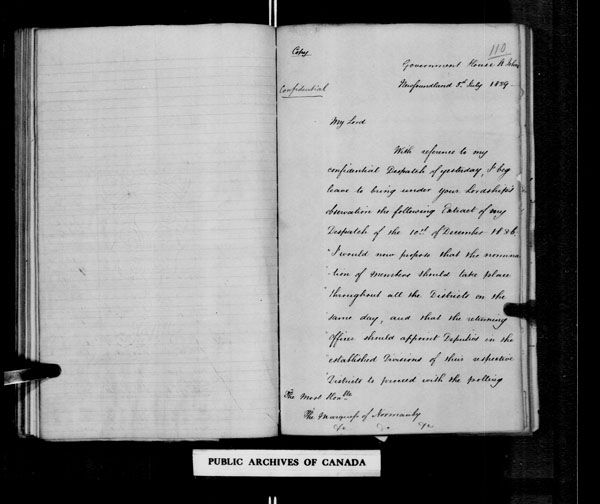 Copy
110
Government House St Johns
Newfoundland 5th July 1839
Confidential
My Lord
With reference to my
confidential Despatch of yesterday, I beg
leave to bring under your Lordship's
observation the following Extract of my
Despatch of the 10th of December 1836.
"I would now propose that the nomina
"tion of members should take place
"throughout all the Districts on the
same day, and that the returning
"officer should appoint Deputies in the
"established Divisions of their respective
"Districts to proceed with the polling
The Most Honble
The Marquess of Normanby
&c &c &c
PUBLIC ARCHIVES OF CANADA